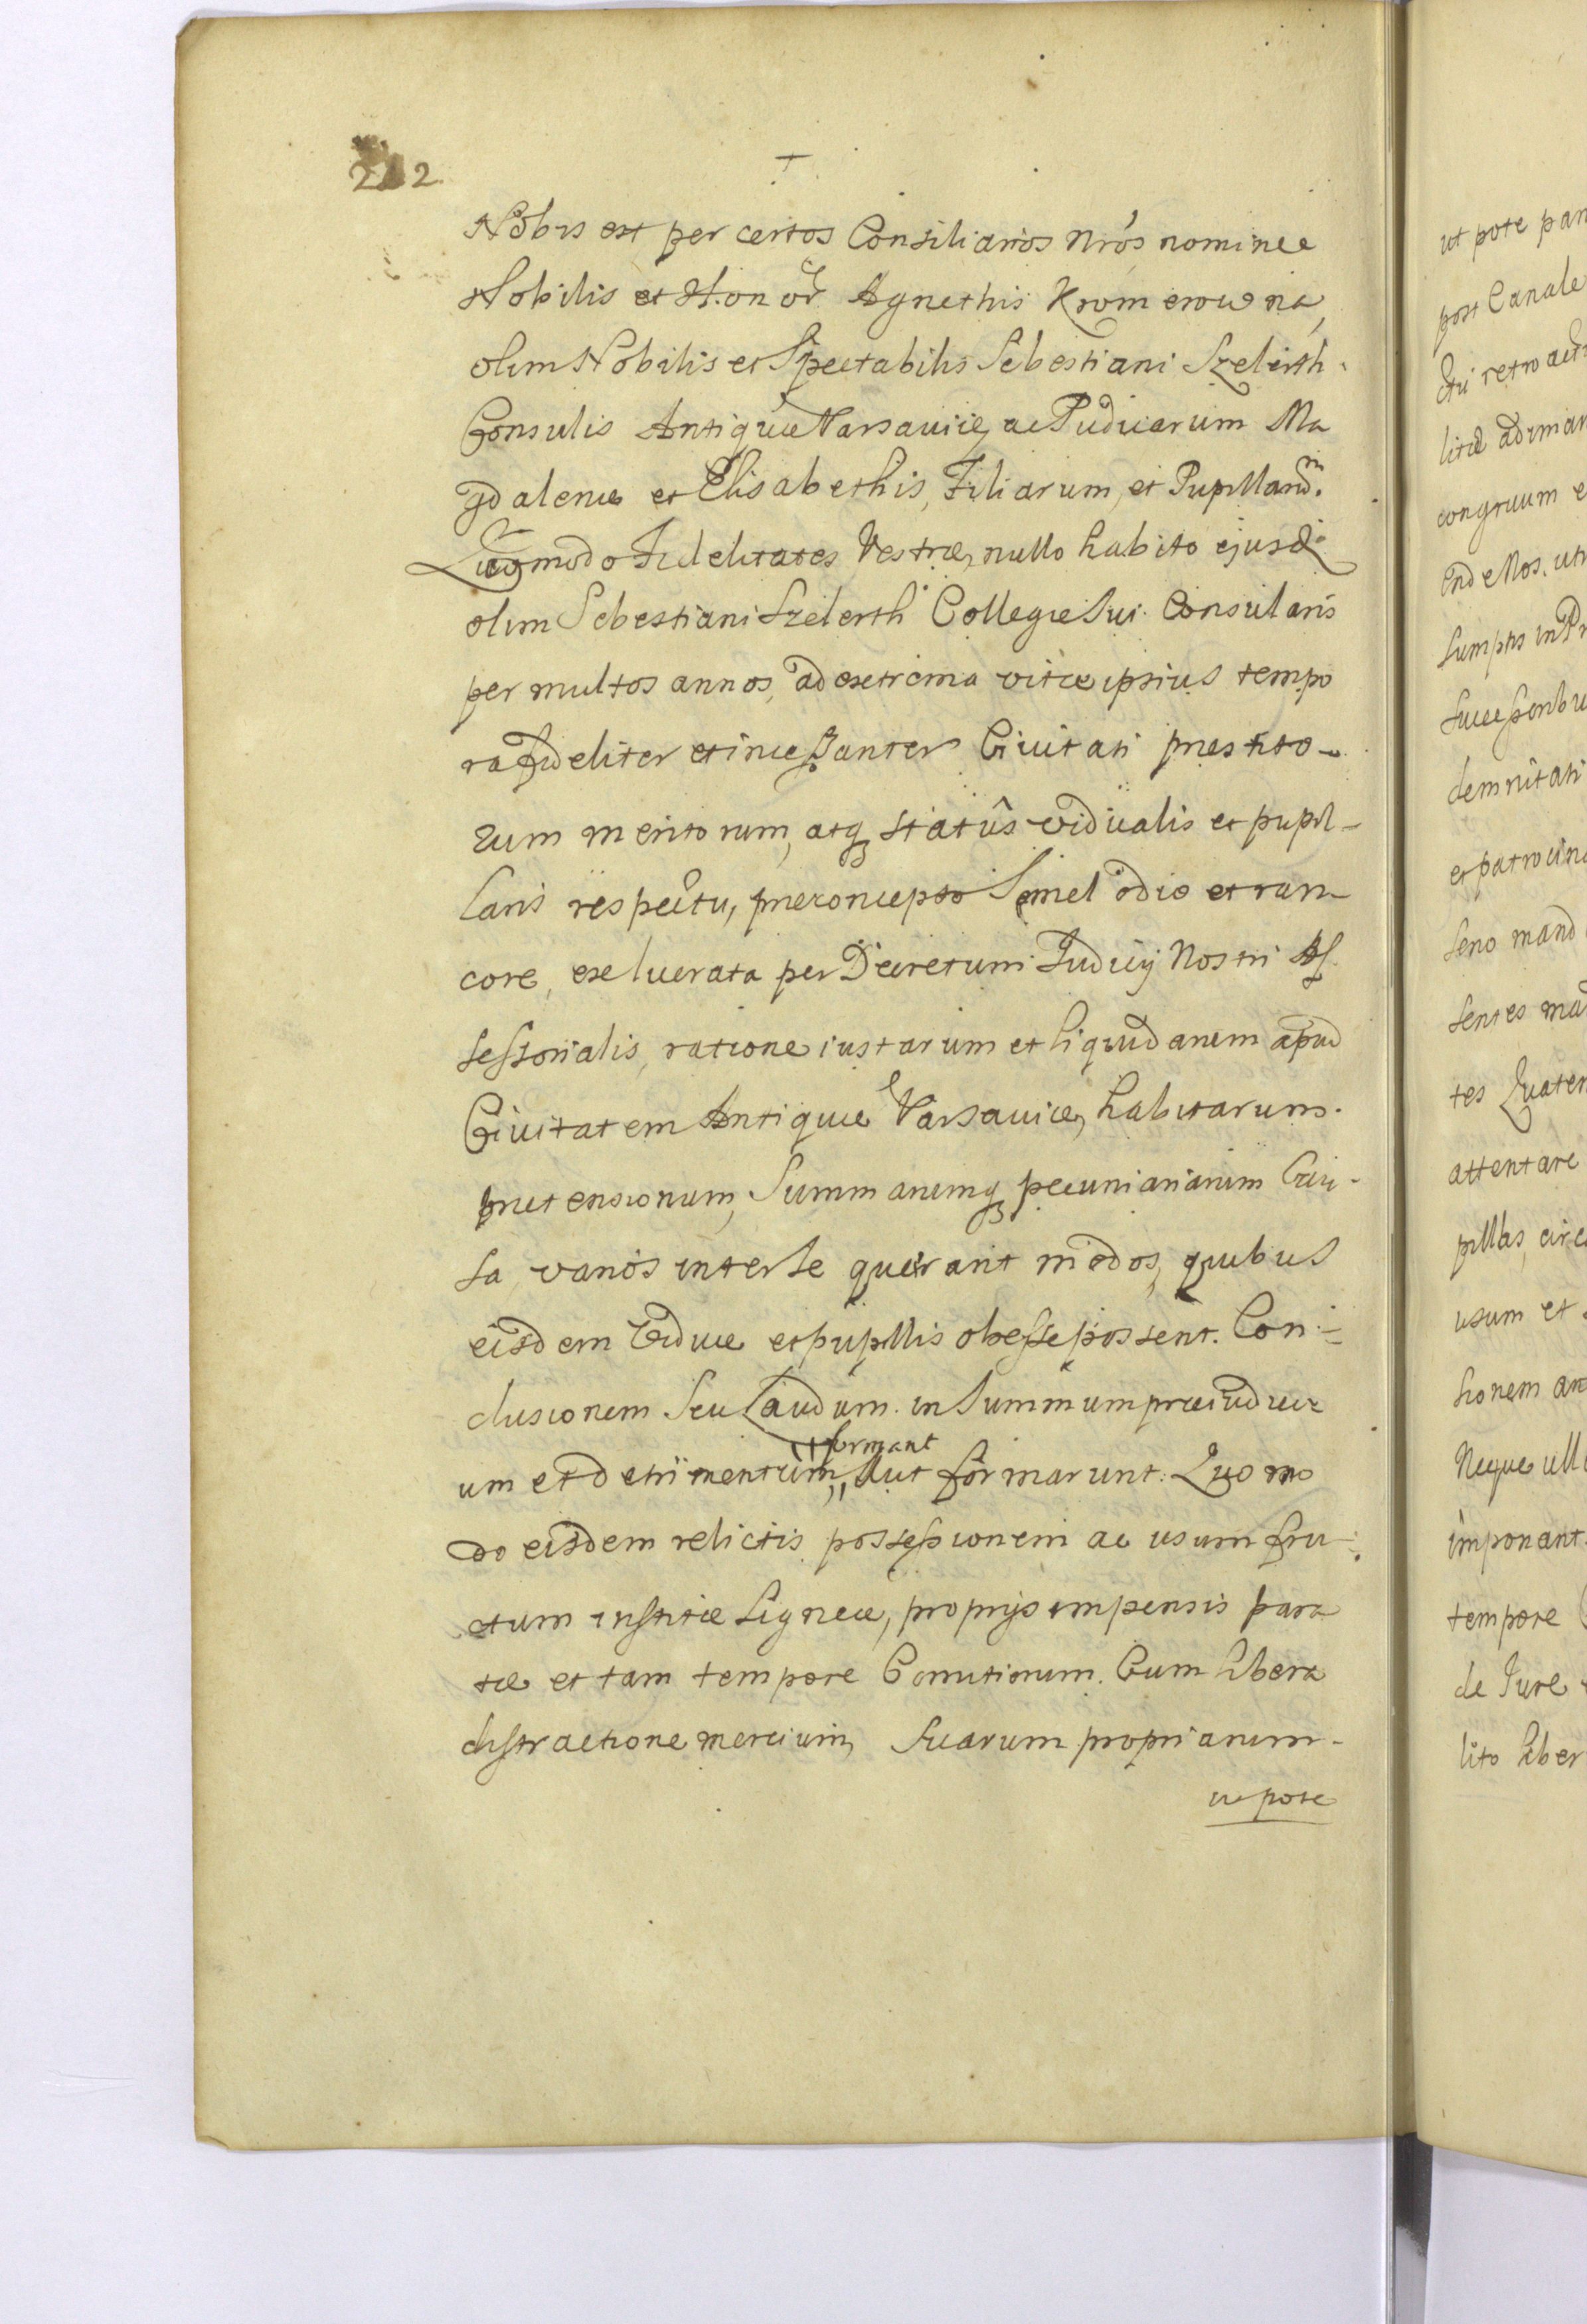 212
+
Nobis est per certos Consiliarios Nros nomine
Nobilis et Honor Agnethis Kromerowna,
olim Nobilis et Spectabilis Sebestiani Szelerth
Consulis Antiquæ Varsaviæ, ac Pudicarum Ma
gdalenæ et Elisabethis, Filiarum, et Pupillarum.
Quomodo Fidelitates Vestræ, nullo habito ejusd
olim Sebestiani Szelerth Collegæ Sui Consularis
per multos annos, ad extrema vitæ ipsius tempo
ra fideliter et incessanter Civitati præstito-
rum meritorum, atq statûs vidualis et pupil-
laris respectu, præconcepto Semel odio et ran-
core, exelucrata per Decretum Judicij Nostri As
sessorialis, ratione iustarum et liquidarum apud
Civitatem Antiquæ Varsaviæ, habitarum
prætensionum, Summarumq pecuniariarum Cau-
sa, varios inter se quærant modos, quibus
eisdem Viduæ et pupillis obesse possent. Con-
clusionem Seu Laudum in Summum præiudici
um et detrimentum, formant Aut formarunt. Quo mo
do eisdem relictis possessionem ac usum fru-
ctum institæ Ligneæ, proprijs impensis para
tæ et tam tempore Comitiorum. Cum libera
distractione mercium, Suarum propriarum-
ut pote
ut pote pan
post Canale
ctu retro act
litæ adiman
congruum e
Inde Nos, ut
sumptis in Pr
Successoribu
demnitati
et patrocin
seno mand
sentes ma
tes Quaten
attentare
pillas, circ
usum et
sionem an
Neque ull
imponant.
tempore
de Jure
lito liber